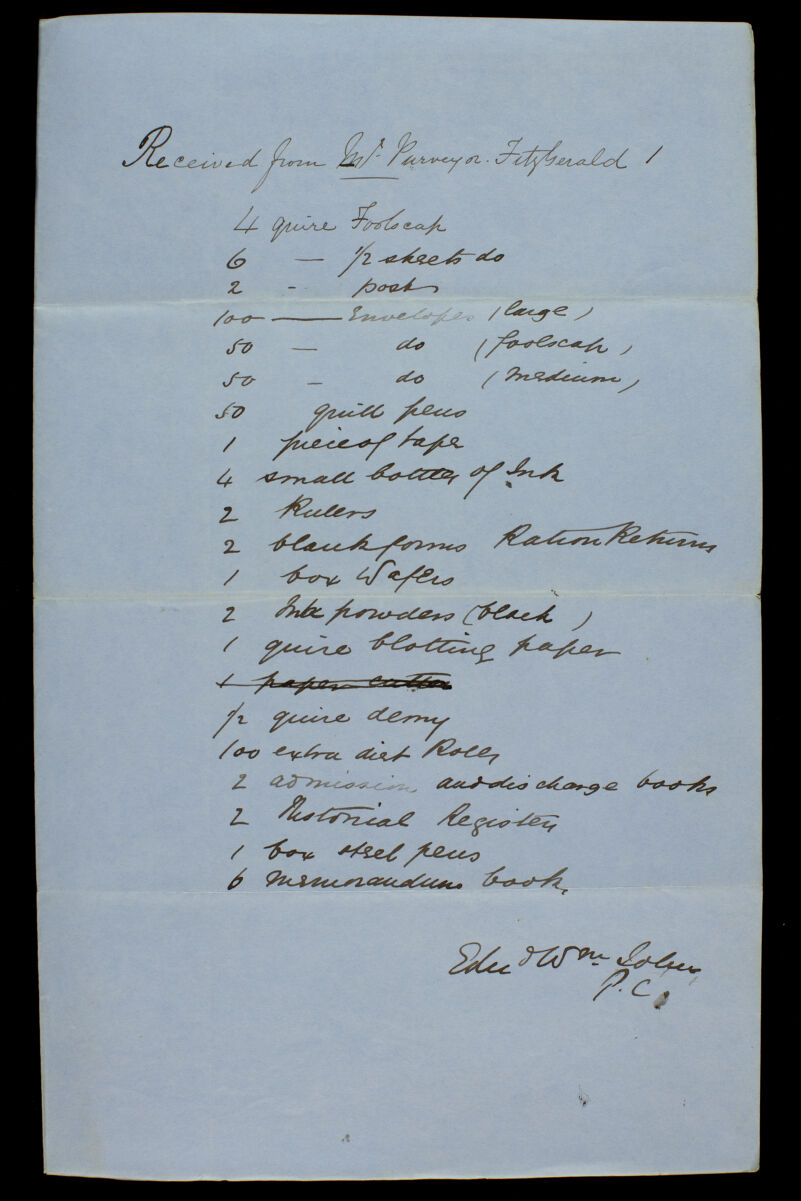 Received from Mr. Purveyor. FitzGerald 1
4 quire Foolscap
6 — 1/2 sheets do
2 - post
100 — Envelopes (large)
50 — do (foolscap)
50 — do (medium)
50 quill pens
1 piece of tape
4 small bottles of Ink
2 Rulers
2 blank forms Ration Returns
1 box Wafers
2 Ink powders (black)
1 quire blotting paper
1 paper cutter
1/2 quire demy
100 extra diet Rolls
2 admission and discharge books
2 Historical Registers
1 box steel pens
6 memorandum books
Wm
P.C.